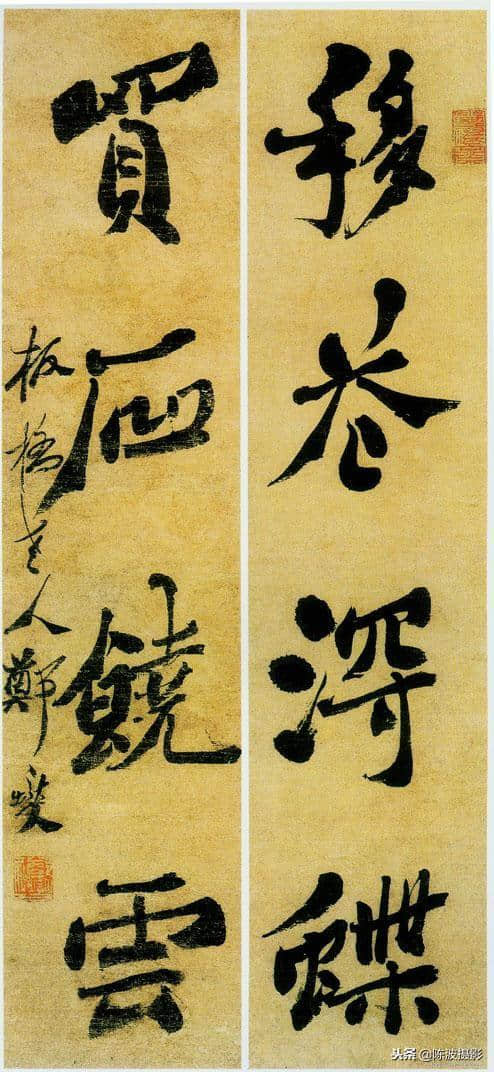 移花得蝶
買石饒雲
板橋老人鄭燮
头条 @陈波摄影